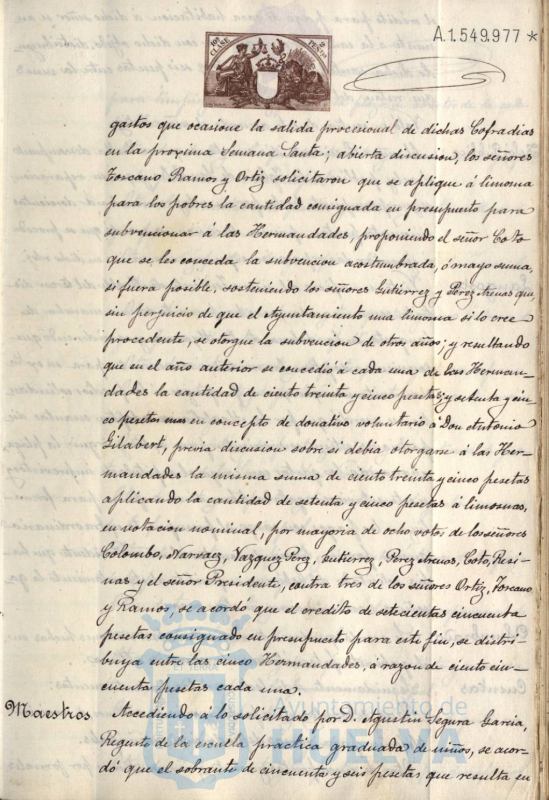 A.1.549.977 *
10ª CLASE
2 PESETAS
gastos que ocasione la salida procesional de dichas Cofradias
en la proxima Semana Santa; abierta discusion, los señores
Toscano Ramos y Ortiz solicitaron que se aplique á limosna
para los pobres la cantidad consignada en presupuesto para
subvencionar á las Hermandades, proponiendo el señor Coto
que se les conceda la subvencion acostumbrada, ó mayor suma,
si fuera posible, sosteniendo los señores Gutierrez y Perez que,
sin perjuicio de que el Ayuntamiento una limosna si lo cree
procedente, se otorgue la subvencion de otros años; y resultando
que en el año anterior se concedió á cada una de las Herman-
dades la cantidad de ciento treinta y cinco pesetas; y setenta y cin-
co pesetas mas en concepto de donativo voluntario á Don Antonio
Gilabert, previa discusion sobre si debia otorgarse á las Her-
mandades la misma suma de ciento treinta y cinco pesetas
aplicando la cantidad de setenta y cinco pesetas á limosnas,
en votacion nominal, por mayoria de ocho votos de los señores
Colombo, Narvaez, Vazquez Perez, Gutierrez, Perez, Coto, Resi-
nas y el señor Presidente, contra tres de los señores Ortiz, Toscano
y Ramos, se acordó que el credito de setecientas cincuenta
pesetas consignado en presupuesto para este fin, se distri-
buya entre las cinco Hermandades, á razon de ciento cin-
cuenta pesetas cada una.
Maestros Accediendo á lo solicitado por D. Agustin Segura Garcia,
Regente de la escuela practica graduada de niños, se acor-
dó que el sobrante de cincuenta y seis pesetas que resulta en
Ayuntamiento de
HUELVA